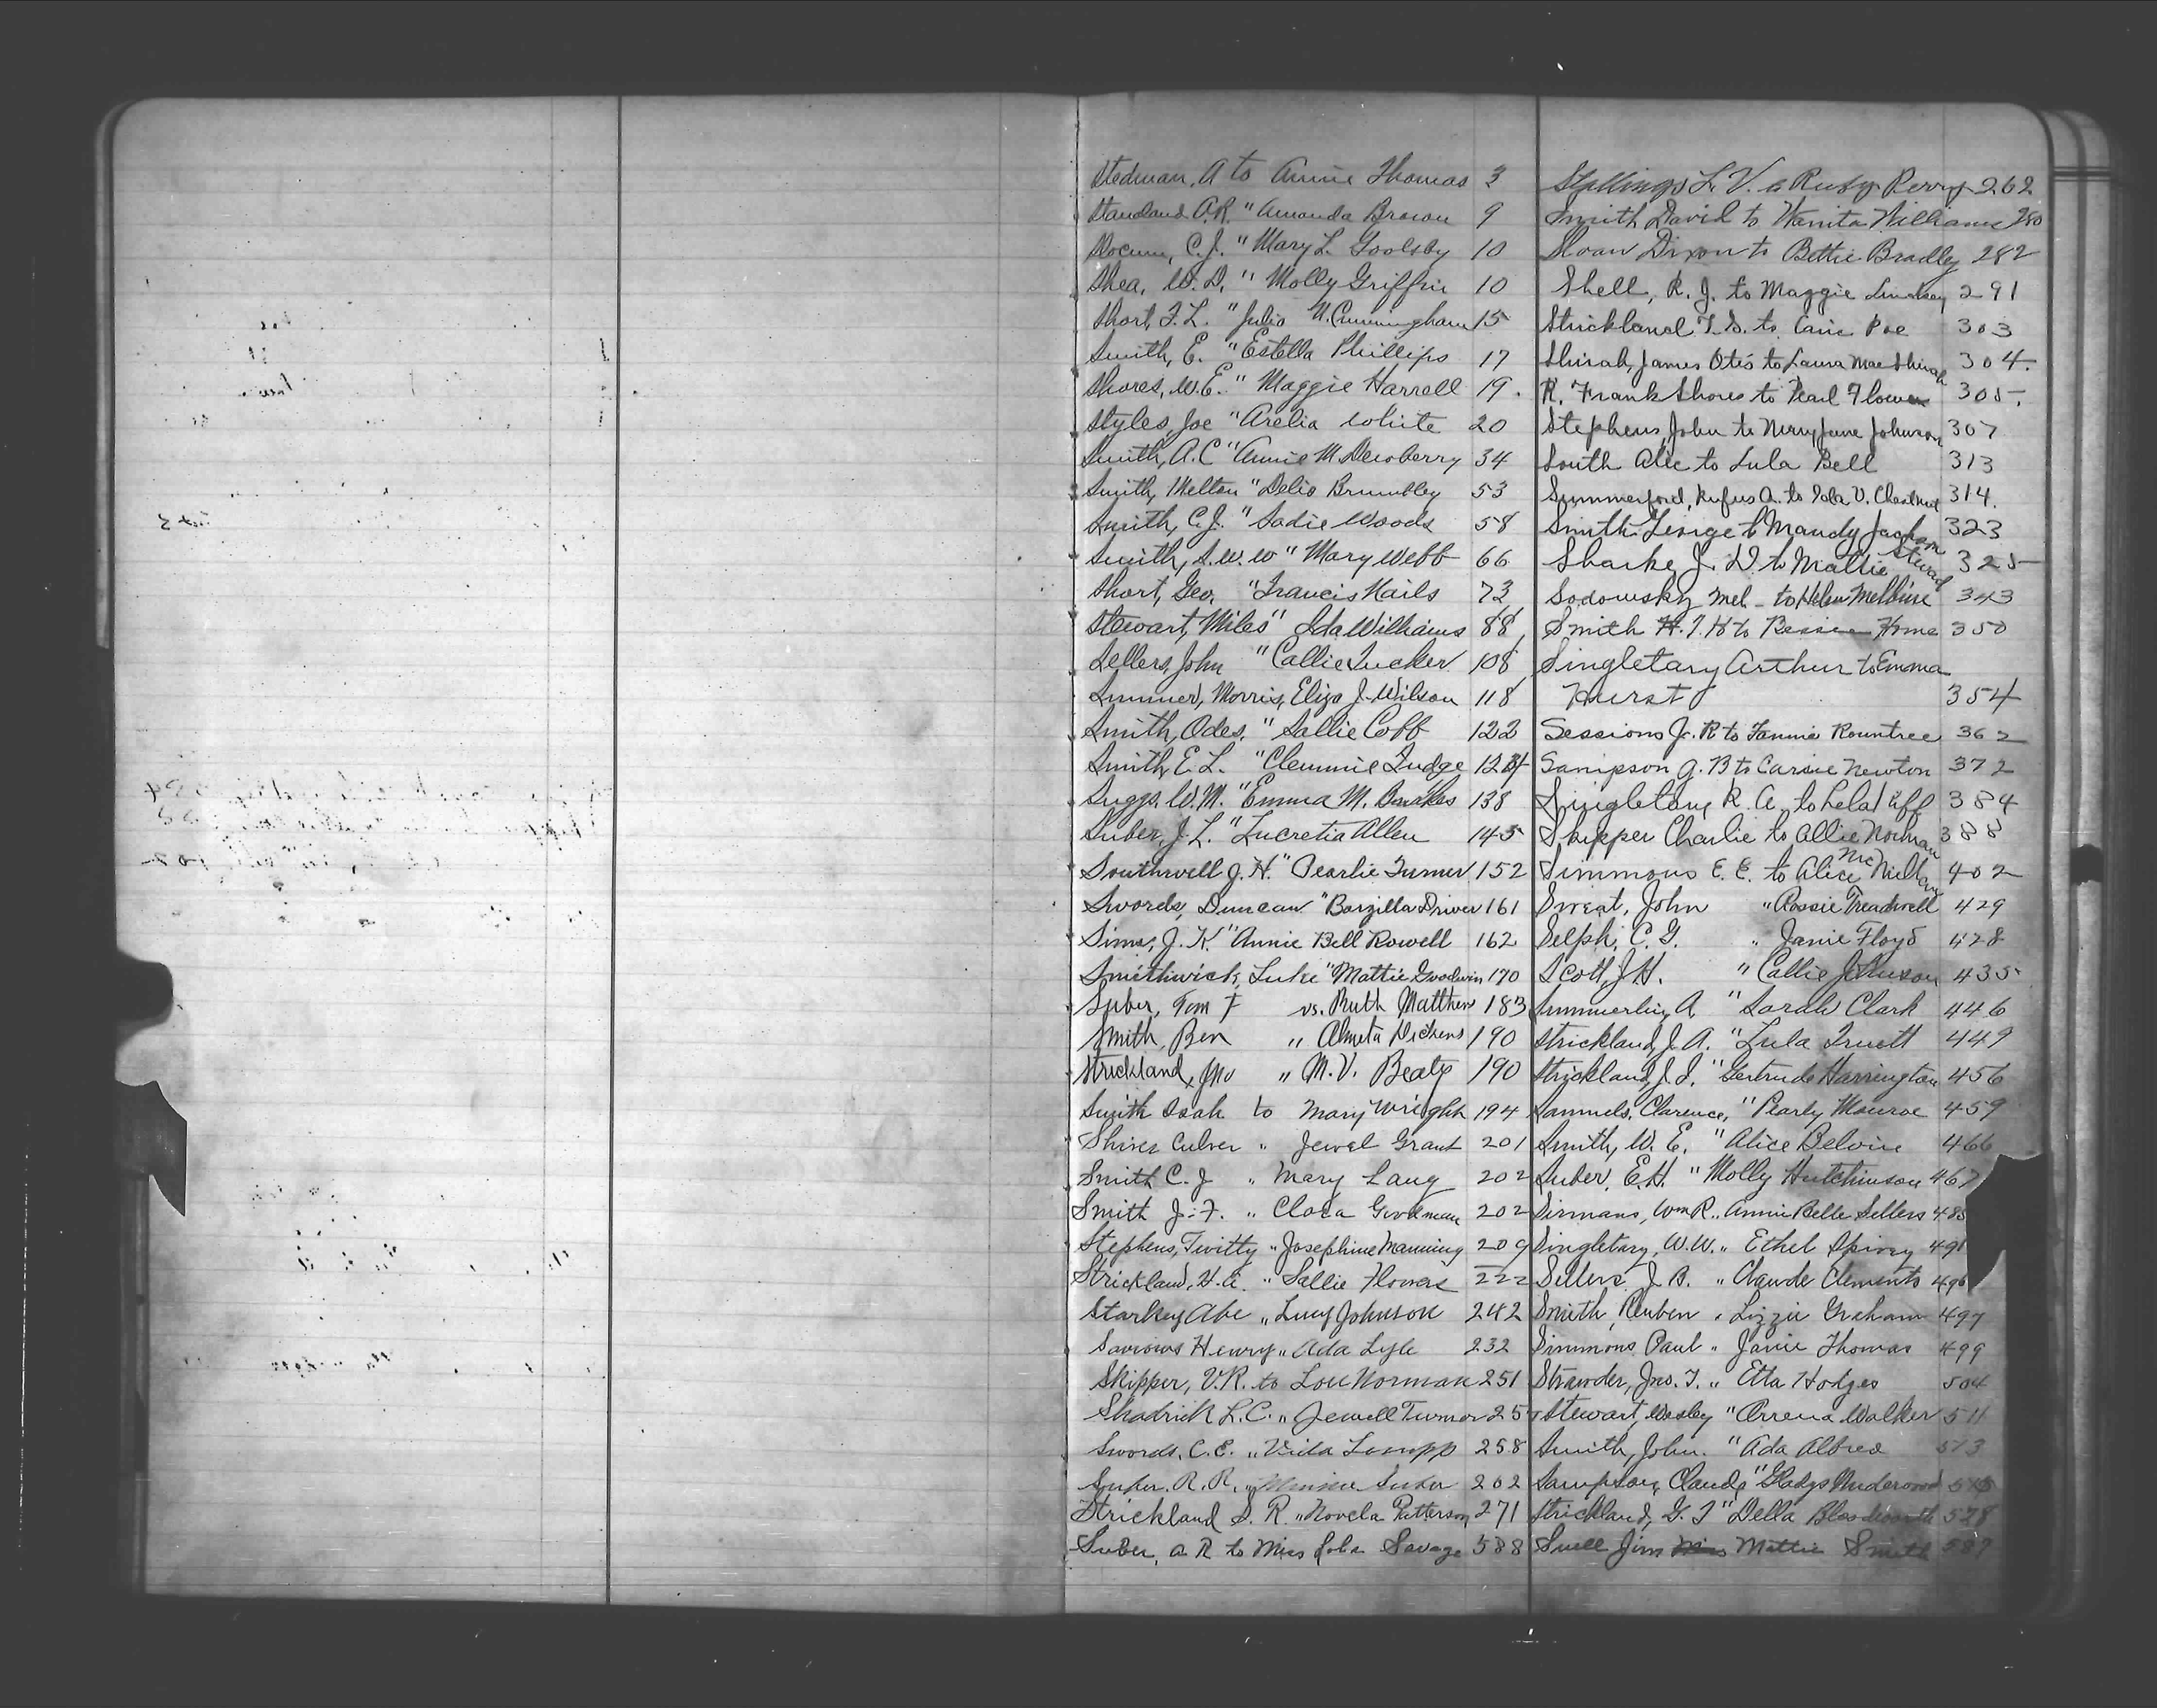 Stedman, A to Annie Thomas 3
Standland A.R. " Amanda Brown 9
Slocum, C.J. " Mary L. Goolsby 10
Shea, W.D. " Molly Griffin 10
Short, F.L. " Julia N. Cunningham 15
Smith, E. " Estella Phillips 17
Shores, W.E. " Maggie Harrell 19.
Styles, Joe " Arelia White 20
Smith, A.C " Annie M. Dewberry 34
Smith, Melton " Delia Brumbley 53
Smith, C.J. " Sadie Woods 58
Smith, S.W.W " Mary Webb 66
Short, Geo. " Francis Nails 73
Stewart, Miles " Ida Williams 88
Sellers, John " Callie Tucker 108
Summer, Morris, Eliza J. Wilson 118
Smith, Odes, " Sallie Cobb 122
Smith, E.L. " Clemmie Judge
Suggs, W.M. " Emma M. Barkes 138
Suber, J.L. " Lucretia Allen 145
Southwell J.H. " Pearlie Turner 152
Swords, Duncan " Barzilla Driver 161
Sims, J.K. " Annie Bell Rowell 162
Smithwick, Luke " Mattie Goodwin 170
Suber, Tom F vs. Ruth Matthew 183
Smith, Ben " Almeta Dickens 190
Strickland, Jno " M.V. Beaty 190
Smith Isah to Mary Wright 194
Shiver Culver " Jewel Grant 201
Smith C.J " Mary Lang 202
Smith J.F. " Clora Goodman 202
Stephens, Twitty " Josephine Manning 209
Strickland, H.A. " Sallie Flowers 222
Starkey Abe " Lucy Johnson 242
Henry " Ada Lyle 232
Skipper, V.R. to Lou Norman 251
Shadrick L.C. " Jewell Turner 257
Swords, C.E. " Vida 258
Suber, R.R. " Minnie Suber 202
Strickland S.R. " Novela Patterson 271
Suber, A R to Miss Lola Savage 588
Stallings L.V. to Ruby Perry 262
Smith David to Wanita Williams 280
Sloan Dixon to Bettie Bradley 282
Shell, R.J. to Maggie Lindsey 291
Strickland T.S. to Carie Poe 303
Shirah, James Otis to Laura Mae Shirah 304.
R. Frank Shores to Pearl Flowers 305.
Stephens, John to Jane Johnson 307
South Alec to Lula Bell 313
Summerford, Rufus A. to Ida V. Chestnut 314.
Smith George to Mandy Jackson 323
Sharke J.D. to Mattie 325
Sodowsky Mel - to Helen Melbine 343
Smith H.T.H to Home 350
Singletary Arthur to Emma
Hurst 354
Sessions J.R to Fannie Rountree 362
Sampson G.B to Carsie Newton 372
Singletary R.A. to 384
Skipper Charlie to Allie Norman 388
Simmons E.E. to Alice McMillan 402
Sweat, John " Rossie Treadwell 429
Selph, C.G. " Janie Floyd 428
Scott, J.H. " Callie Johnson 435
Summerlin, A " Sarah Clark 446
Strickland, J.A. " Lula Truett 449
Strickland, J.I. " Gertrude Harrington 456
Samuels, Clarence, " Pearly Monroe 459
Smith, W.E. " Alice Belvin 466
Suber, E.H. " Molly Hutchinson 467
Sirmans, Wm R. " Annie Belle Sellers 485
Singletary, W.W. " Ethel Spivey 491
Sellers, J.B. " Claude Clements 496
Smith, Reuben " Lizzie Graham 497
Simmons Paul " Janie Thomas 499
Strawder, Jno. T. " Etta Hodges 504
Stewart, Wesley " Orrena Walker 511
Smith, John. " Ada Albrea 513
Sampson, Claude " Gladys Underwood
Strickland, G.T " Della Bloodworth 578
Snell Jim Mattie Smith 587